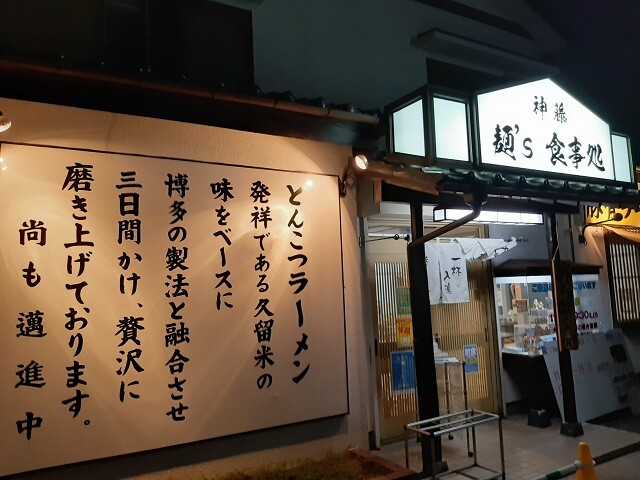 神藤
麺's 食事処
とんこつラーメン
発祥である久留米の
味をベースに
博多の製法と融合させ
三日間かけ、贅沢に
磨き上げております。
尚も邁進中
一杯